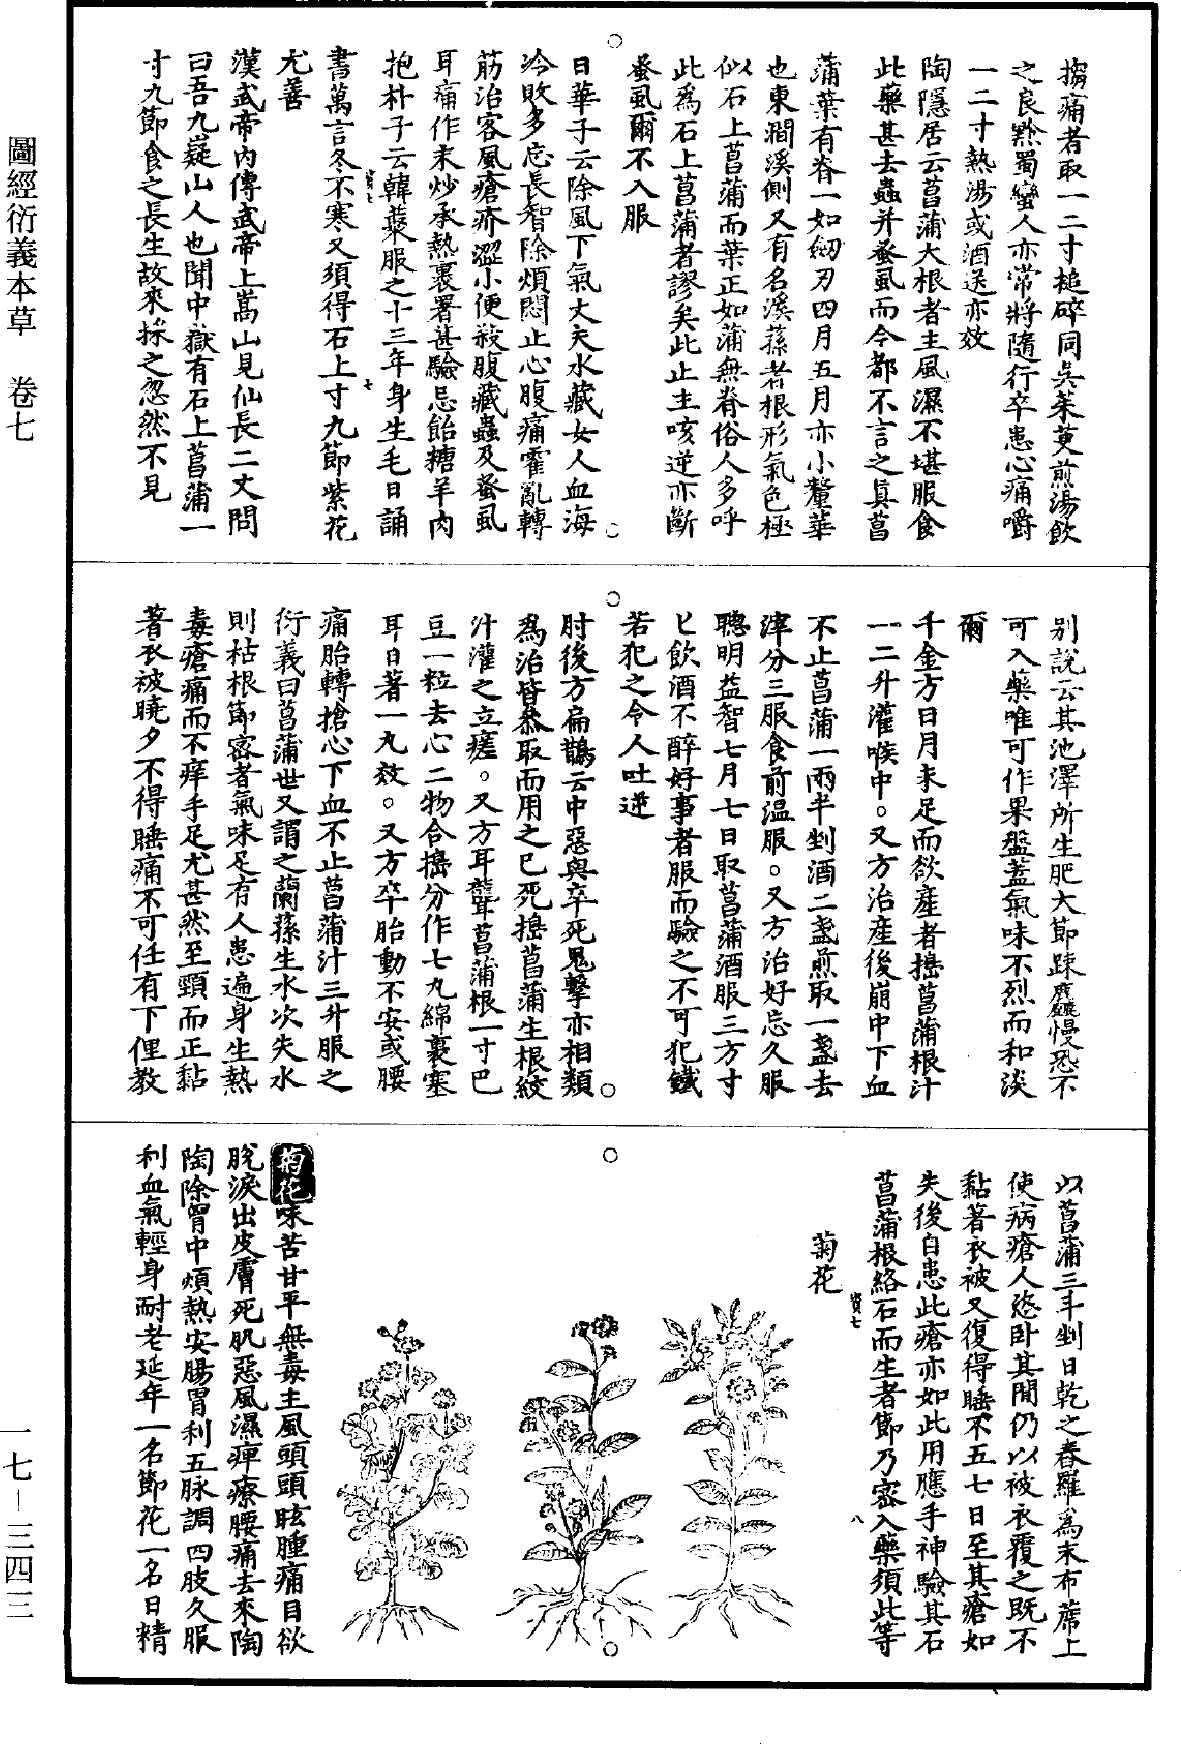 搊痛者取一二寸槌碎同吳茱萸煎湯飲
之良黔蜀蠻人亦常將隨行卒患心痛嚼
一二寸熱湯或酒送亦效
陶隱居云菖蒲大根者主風濕不堪服食
此藥甚去蟲并蚤虱而今都不言之真菖
蒲葉有脊一如劒刃四月五月亦小釐華
也東澗溪側又有名溪蓀者根形氣色極
似石上菖蒲而葉正如蒲無脊俗人多呼
此為石上菖蒲者謬矣此止主咳逆亦斷
蚤虱爾不入服
日華子云除風下氣丈夫水藏女人血海
冷敗多忘長智除煩悶止心腹痛霍亂轉
筋治客風瘡疥澀小便殺腹藏蟲及蚤虱
耳痛作末炒承熱裹署甚驗忌飴糖羊肉
抱朴子云韓衆服之十三年身生毛日誦
書萬言冬不寒又須得石上寸九節紫花
尤善
漢武帝內傳武帝上嵩山見仙長二丈問
曰吾九嶷山人也聞中嶽有石上菖蒲一
寸九節食之長生故來採之忽然不見
别說云其池澤所生肥大節踈麄慢恐不
可入藥唯可作果盤蓋氣味不烈而和淡
爾
千金方日月未足而欲產者搗菖蒲根汁
一二升灌喉中。又方治產後崩中下血
不止菖蒲一兩半剉酒二盞煎取一盞去
滓分三服食前温服。又方治好忘久服
聰明益智七月七日取菖蒲酒服三方寸
匕飲酒不醉好事者服而驗之不可犯鐵
若犯之令人吐逆
肘後方扁鵲云中惡與卒死鬼擊亦相類
為治皆叅取而用之已死搗菖蒲生根絞
汁灌之立瘥。又方耳聾菖蒲根一寸巴
豆一粒去心二物合搗分作七丸綿裹塞
耳日著一丸效。又方卒胎動不安或腰
痛胎轉搶心下血不止菖蒲汁三升服之
衍義曰菖蒲世又謂之蘭蓀生水次失水
則枯根節密者氣味足有人患遍身生熱
毒瘡痛而不痒手足尤甚然至頸而正黏
著衣被曉夕不得睡痛不可任有下俚教
以菖蒲三斗剉日乾之舂羅為末布蓆上
使病瘡人恣卧其間仍以被衣覆之既不
黏著衣被又復得睡不五七日至其瘡如
失後自患此瘡亦如此用應手神驗其石
菖蒲根絡石而生者節乃密入藥須此等
菊花
菊花味苦甘平無毒主風頭頭眩腫痛目欲
脫淚出皮膚死肌惡風濕痺療腰痛去來陶
陶除胷中煩熱安腸胃利五脉調四肢久服
利血氣輕身耐老延年一名節花一名日精
圖經衍義本草 卷七
一七—三四三